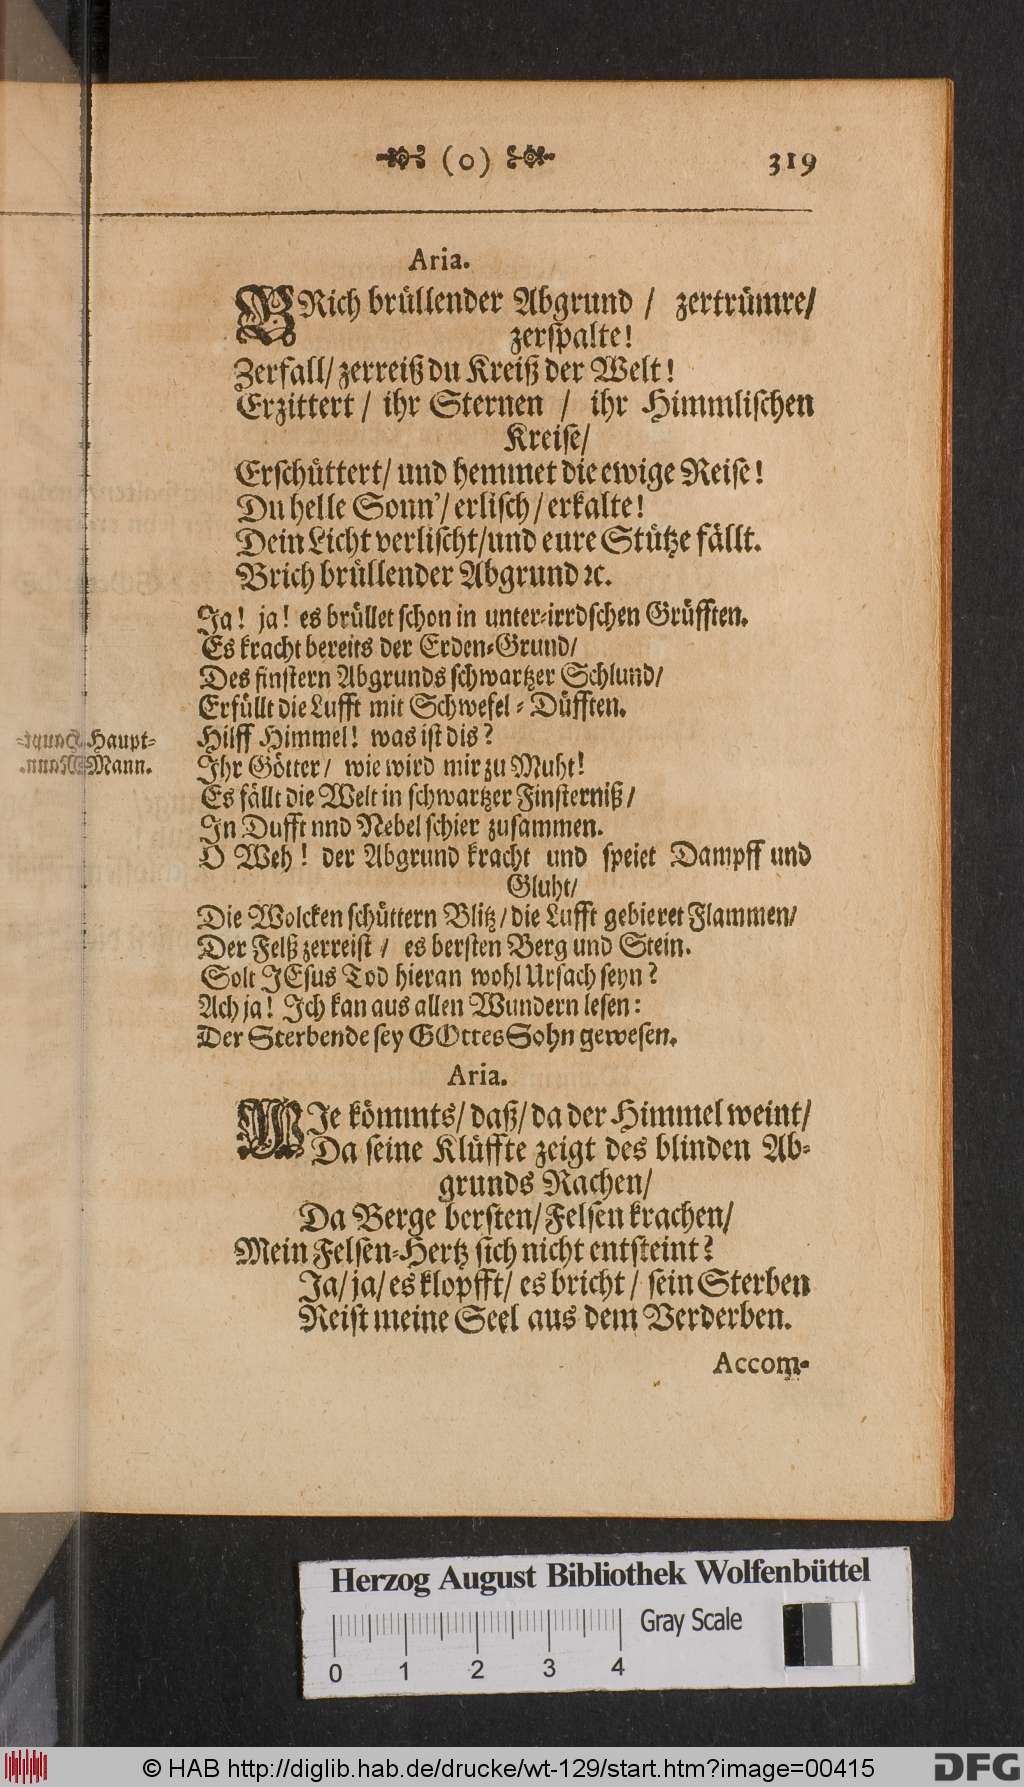 (o) 319
Aria.
BRich brüllender Abgrund / zertrümre/
zerspalte!
Zerfall/ zerreiß du Kreiß der Welt!
Erzittert / ihr Sternen / ihr Himmlischen
Kreise/
Erschüttert/ und hemmet die ewige Reise!
Du helle Sonn'/ erlisch / erkalte!
Dein Licht verlischt/und eure Stütze fällt.
Brich brüllender Abgrund ꝛc.
Ja! ja! es brüllet schon in unter-irrdschen Grüfften.
Es kracht bereits der Erden-Grund/
Des finstern Abgrunds schwartzer Schlund/
Erfüllt die Lufft mit Schwefel-Düfften.
Haupt-
Mann.
Hilff Himmel! was ist dis?
Ihr Götter/ wie wird mir zu Muht!
Es fällt die Welt in schwartzer Finsterniß/
In Dufft nnd Nebel schier zusammen.
O Weh! der Abgrund kracht und speiet Dampff und
Gluht/
Die Wolcken schüttern Blitz/ die Lufft gebieret Flammen/
Der Felß zerreist / es bersten Berg und Stein.
Solt JEsus Tod hieran wohl Ursach seyn?
Ach ja! Ich kan aus allen Wundern lesen:
Der Sterbende sey GOttes Sohn gewesen.
Aria.
WIe kömmts/ daß/ da der Himmel weint/
Da seine Klüffte zeigt des blinden Ab-
grunds Rachen/
Da Berge bersten/ Felsen krachen/
Mein Felsen-Hertz sich nicht entsteint?
Ja/ ja/ es klopfft/ es bricht / sein Sterben
Reist meine Seel aus dem Verderben.
Accom-
Herzog August Bibliothek Wolfenbüttel
Gray Scale
0 1 2 3 4
© HAB http://diglib.hab.de/drucke/wt-129/start.htm?image=00415
DFG